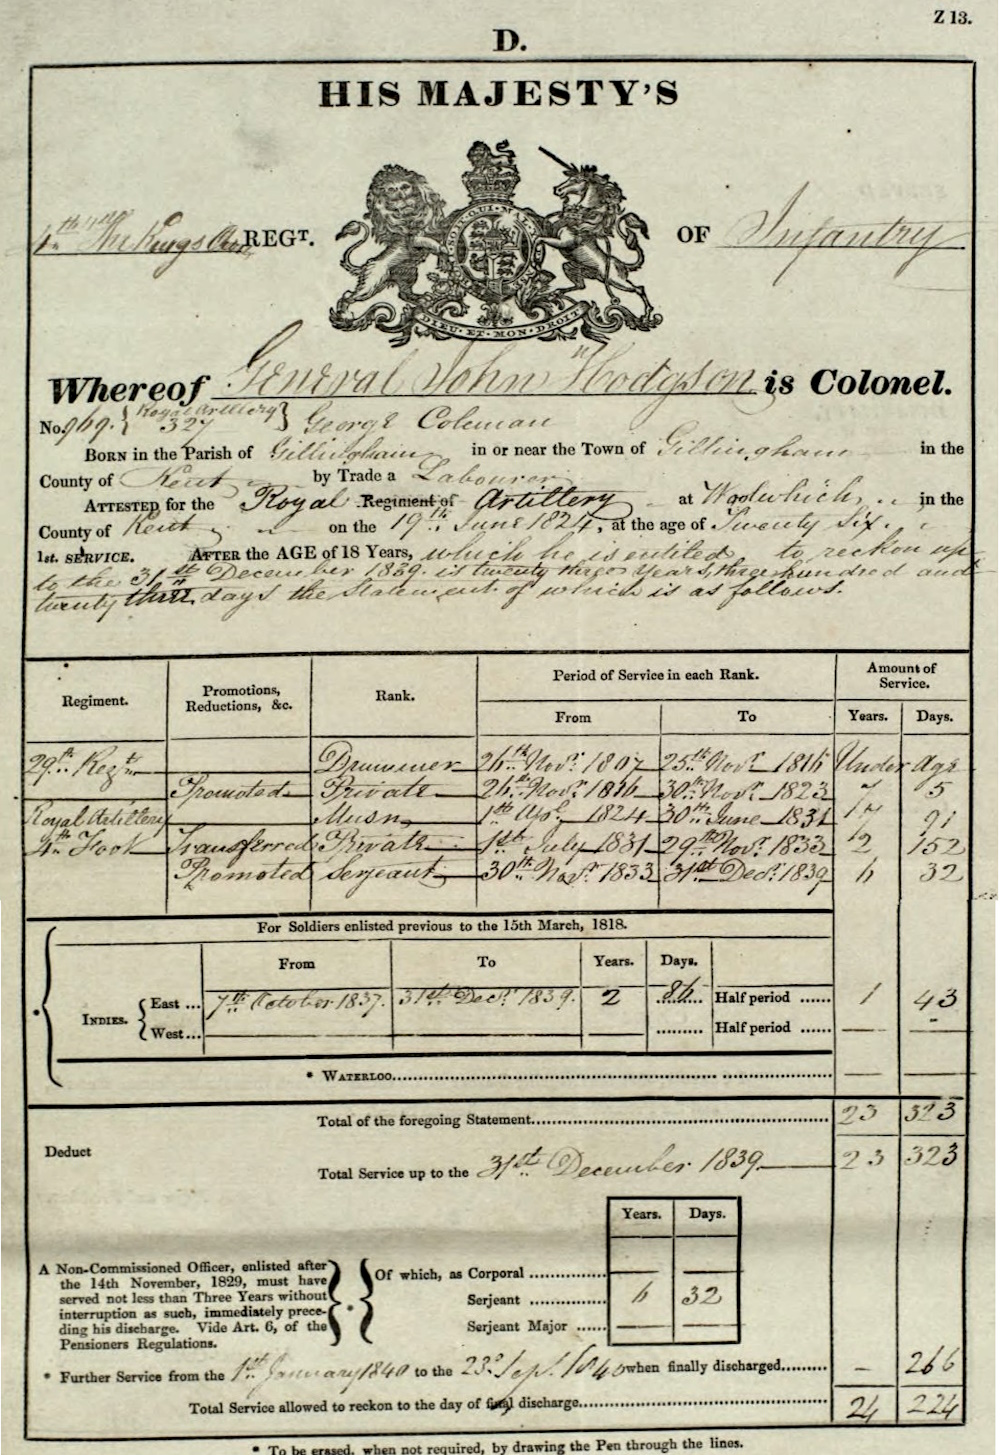 Z 13.
D.
HIS MAJESTY'S
4th The Kings Own REGT. OF Infantry
HONI·SOIT·QUI·MAL·Y·PENSE
DIEU·ET·MON·DROIT
Whereof General John Hodgson is Colonel.
No. 969. { Royal Artillery 327 } George Coleman
BORN in the Parish of Gillingham in or near the Town of Gillingham in the
County of Kent by Trade a Labourer
ATTESTED for the Royal Regiment of Artillery at Woolwich in the
County of Kent on the 19th June 1824, at the age of Twenty Six.
1st. SERVICE. AFTER the AGE of 18 Years, which he is entitled to reckon up
to the 31st December 1839. is twenty three years, three hundred and
twenty three days the Statement of which is as follows.
Regiment. Promotions, Reductions, &c. Rank. Period of Service in each Rank. Amount of Service.
From To Years. Days.
29th Regt Drummer 26th Novr. 1807 25th Novr. 1816 Under Age
Promoted Private 26th Novr. 1816 30th Novr. 1823 7 5
Royal Artillery Musn 1st Apl. 1824 30th June 1831 7 91
4th Foot Transferred Private 1st July 1831 29th Novr. 1833 2 152
Promoted Serjeant 30th Novr. 1833 31st Decr. 1839 6 32
For Soldiers enlisted previous to the 15th March, 1818.
From To Years. Days.
INDIES. { East ... 7th October 1837. 31st Decr. 1839. 2 86 Half period ...... 1 43
West... Half period ......
* WATERLOO
Total of the foregoing Statement 23 323
Deduct
Total Service up to the 31st December 1839 23 323
Years. Days.
A NON-COMMISSIONED OFFICER, enlisted after
the 14th November, 1829, must have
served not less than Three Years without
interruption as such, immediately prece-
ding his discharge. Vide Art. 6, of the
Pensioners Regulations.
Of which, as Corporal
Serjeant 6 32
Serjeant Major
* Further Service from the 1st January 1840 to the 23d Sept. 1840 when finally discharged – 266
Total Service allowed to reckon to the day of final discharge 24 224
* To be erased, when not required, by drawing the Pen through the lines.